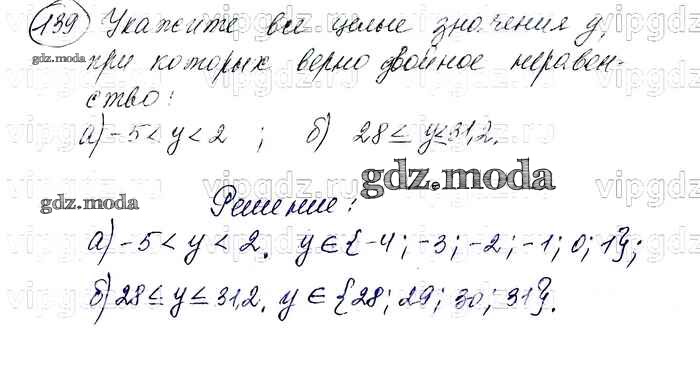 139 Укажите все целые значения y,
gdz.moda
при которых верно двойное неравен-
ство:
а) -5 < y < 2 ; б) 28 ≤ y ≤ 31,2.
gdz.moda
gdz.moda
Решение:
а) -5 < y < 2. y ∈ {-4; -3; -2; -1; 0; 1};
б) 28 ≤ y ≤ 31,2. y ∈ {28; 29; 30; 31}.